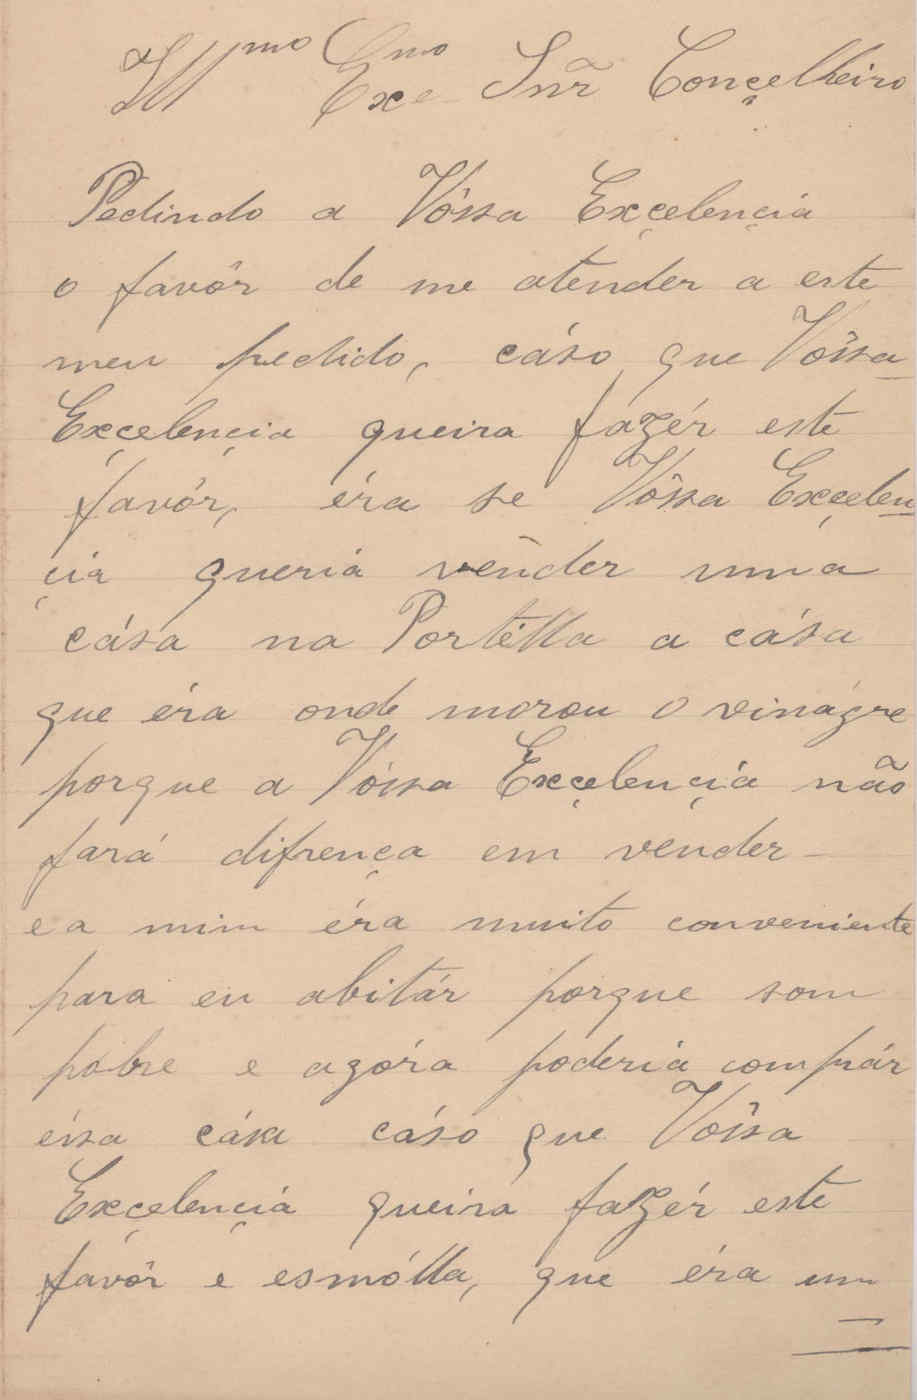 Illmo Exmo Snr̃ Conçelheiro
Pedindo a Vôssa Exçelençia
o favôr de me atender a este
meu pedido, cáso que Vôssa
Exçelençia queira fazér este
favôr, éra se Vôssa Exçelen
çia queria vender uma
cása na Portélla a cása
que éra onde morou o vinágre
porque a Vóssa Exçelençia não
fará difrença em vender
e a mim éra muito conveniente
para eu abitár porque som
pobre e agóra poderia comprár
éssa cása cáso que Vôssa
Exçelençia queira fazér este
favôr e esmólla, que éra um